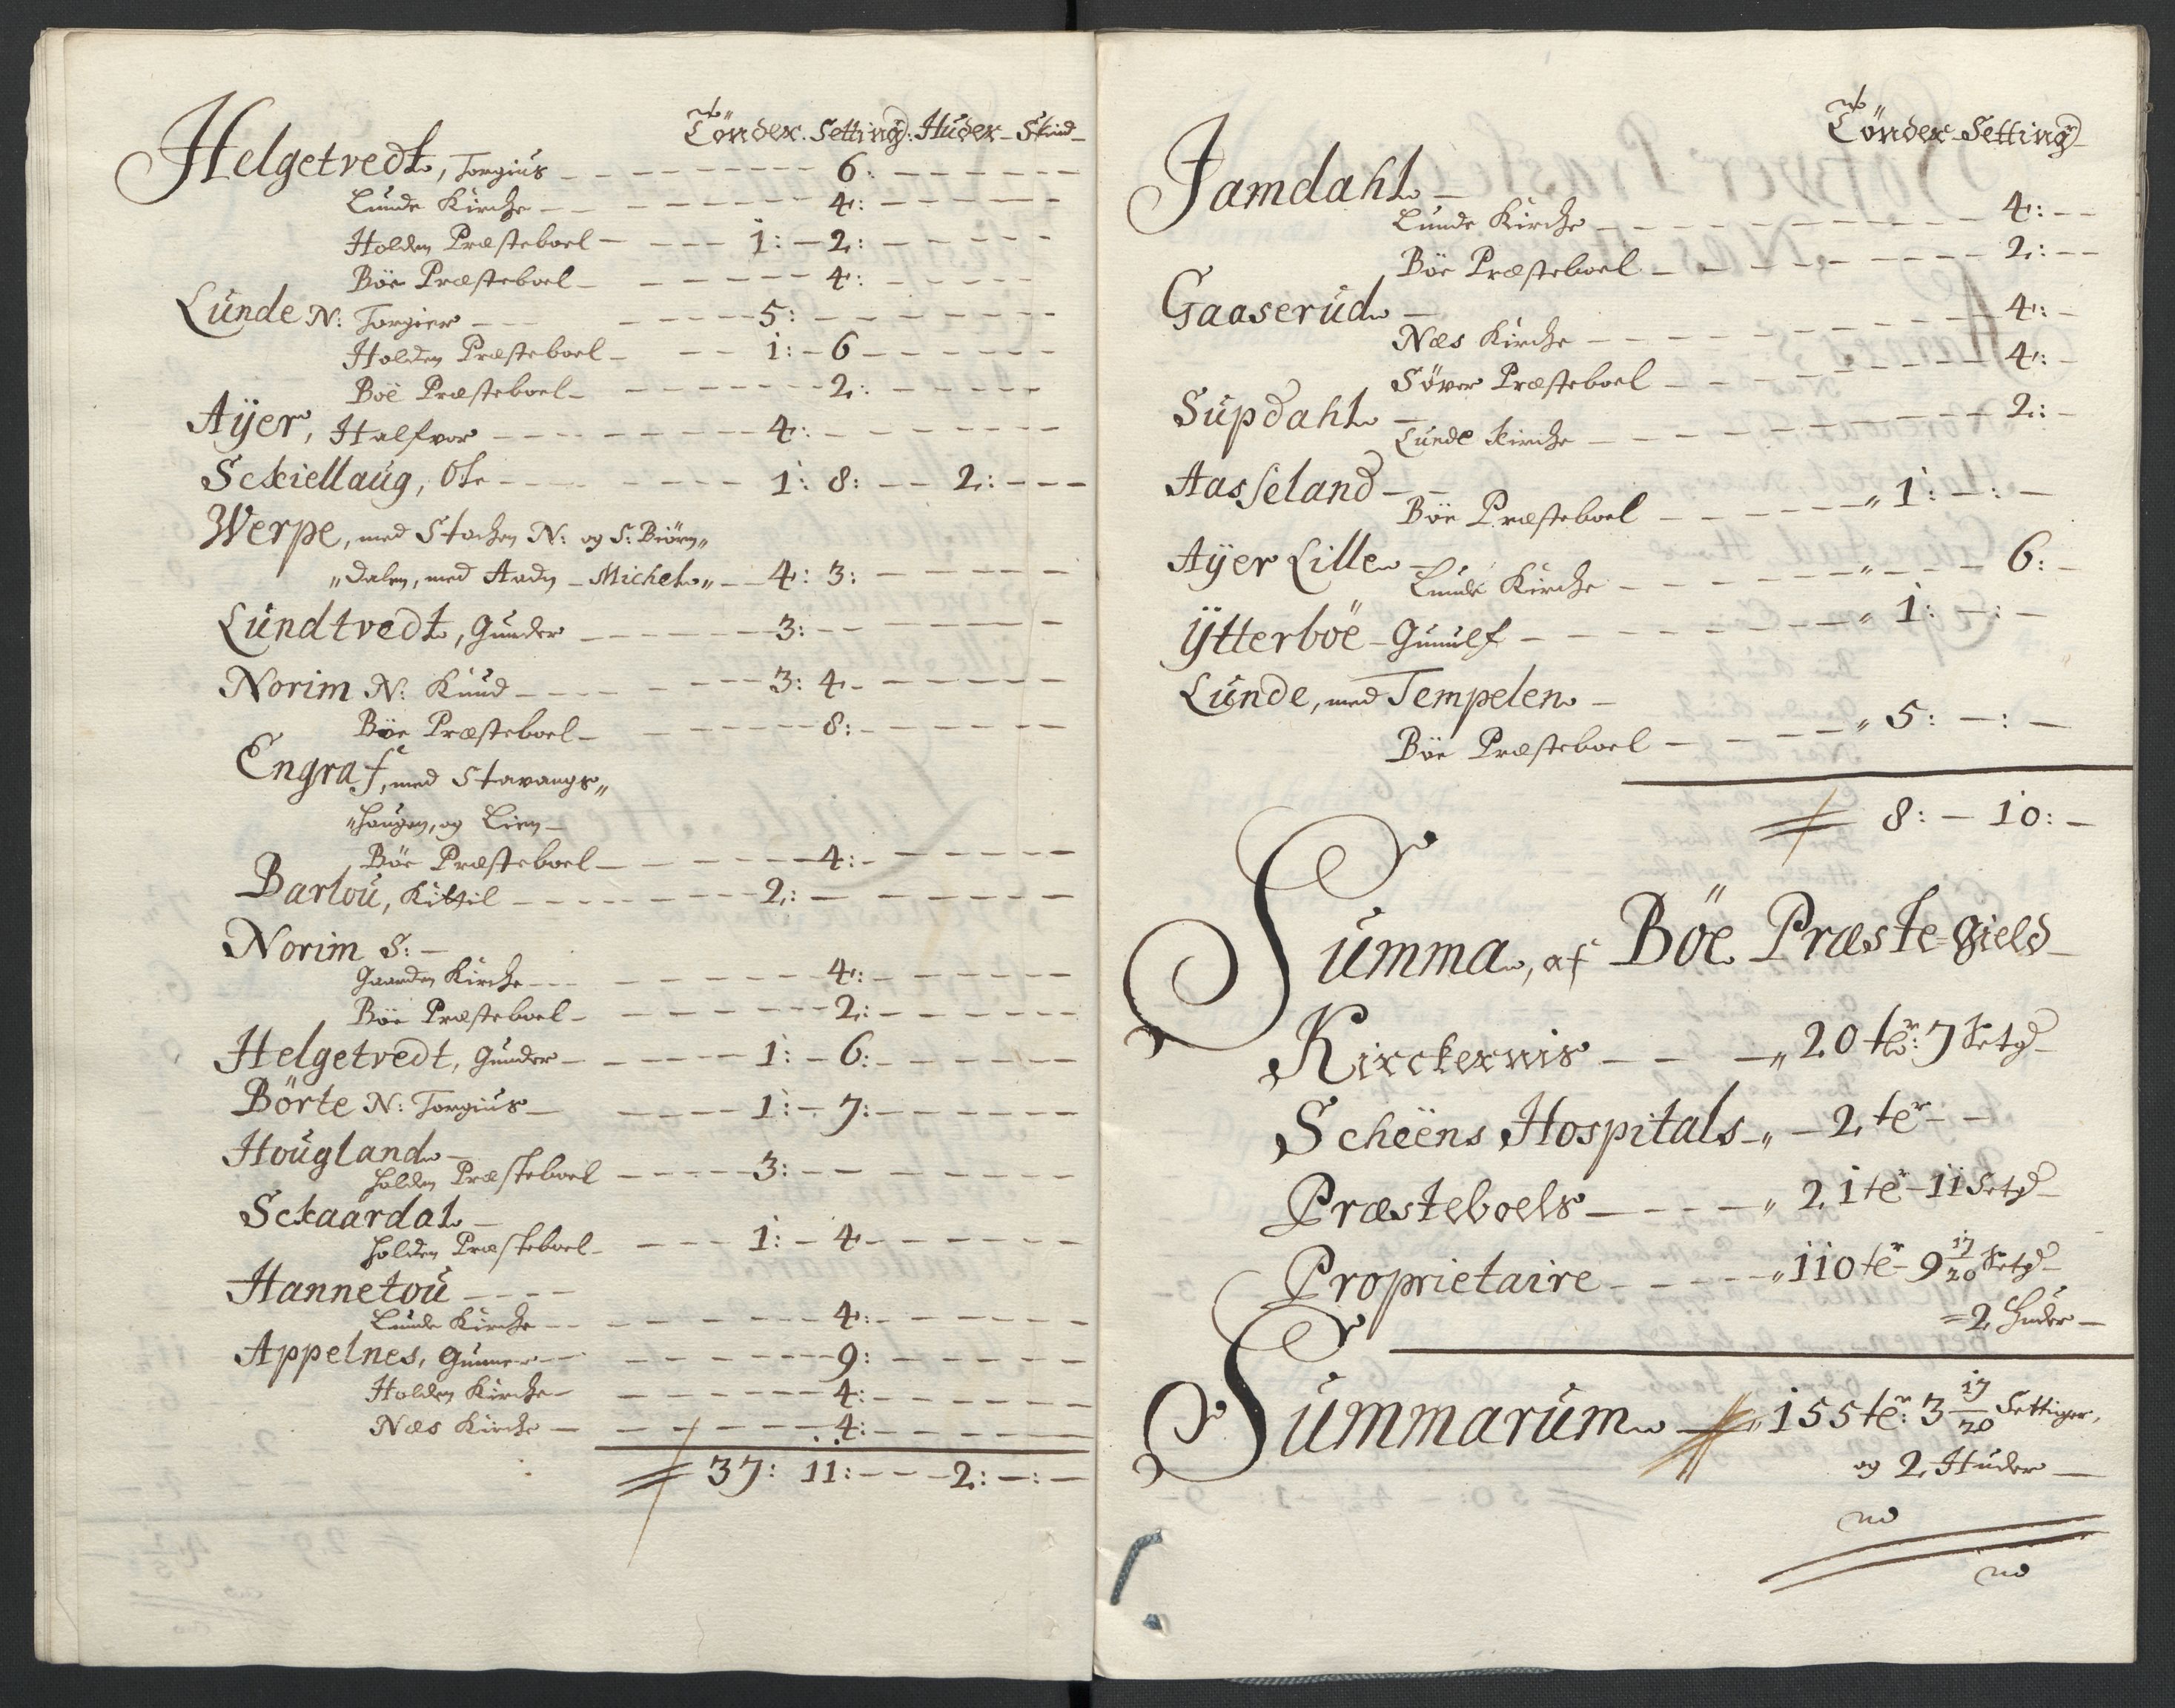 Tönder. Setting: Huder_ Skind_
Helgetvedt, Torgius _ _ _ 6: _ _ _
Lunde Kirche _ _ _ 4: _ _ _
Holden Præsteboel _ _ _ 1: _ 2: _ _ _
Böe Præsteboel _ _ _ 4: _ _ _
Lunde N: Torgier _ _ _ 5: _ _ _
Holden Præsteboel _ _ _ 1: _ 6 _ _ _
Böe Præsteboel _ _ _ 2: _ _ _
Aÿer, Halfvor _ _ _ 4: _ _ _
Sckiellaug, Ole _ _ _ 1: 8: _ _ 2: _ _ _
Werpe, med Stochen N: og S: Biörn„
„dalen, med Aadn _ Michel „ _ 4: 3: _ _ _
Lundtvedt, Gunder _ _ _ 3: _ _ _
Norim N: Knud _ _ _ 3: 4 _ _ _
Böe Præsteboel _ _ _ 8: _ _ _
Engraf, med Stavangs„
„haugen, og Lien _
Böe Præsteboel _ _ _ 4: _ _ _
Barlou, Kittil _ _ _ 2: _ _ _
Norim S: _
Gaarden Kirche _ _ _ 4: _ _ _
Böe Præsteboel _ _ _ 2: _ _ _
Helgetvedt, Gunder _ _ _ 1: _ 6: _ _ _
Börte N: Torgius _ _ _ 1: _ 7: _ _ _
Hougland _
Holden Præsteboel _ _ _ 3: _ _ _
Sckaardal _
Holden Præsteboel _ _ _ 1: _ 4 _ _ _
Hannetou _ _ _
Lunde Kirche _ _ _ 4: _ _ _
Appelnes, Gunner _ _ _ 9: _ _ _
Holden Kirche _ _ _ 4: _ _ _
Næs Kirche _ _ _ 4: _ _ _
37: 11: _ _ _ 2: _:_
Tönder Setting
Jamdahl _
Lunde Kirche _ _ _ 4: _ _
Böe Præsteboel _ _ _ 2: _ _
Gaaserud _
Næs Kirche _ _ _ 4: _
Söver Præsteboel _ _ _ 4: _
Supdahl _
Lunde Kirche _ _ _ 2: _
Aasseland _ _
Böe Præsteboel _ _ _ „ 1: _:_
Aÿer Lille _
Lunde Kirche _ _ _ „ _ _ 6: _
Ÿtterböe _ Gunulf _ _ _ „ 1: _:_
Lunde, med Tempelen _
Böe Præsteboel _ _ _ „ 5: _:_
8: _ 10: _
Summa, af Böe Præste-Gield _
Kirckernis _ _ _ „ 20 tr: 7 Setg _
Scheëns Hospitals _ „ _ 2 ter _ _
Præsteboels _ _ _ „ 21 ter _ 11 Setg _
Proprietaire _ _ _ „ 110 ter _ 9 17/20 Setg _
= 2 Huder _
Summarum _ „ 155 ter: 3 17/20 Settinger,
og 2 Huder _